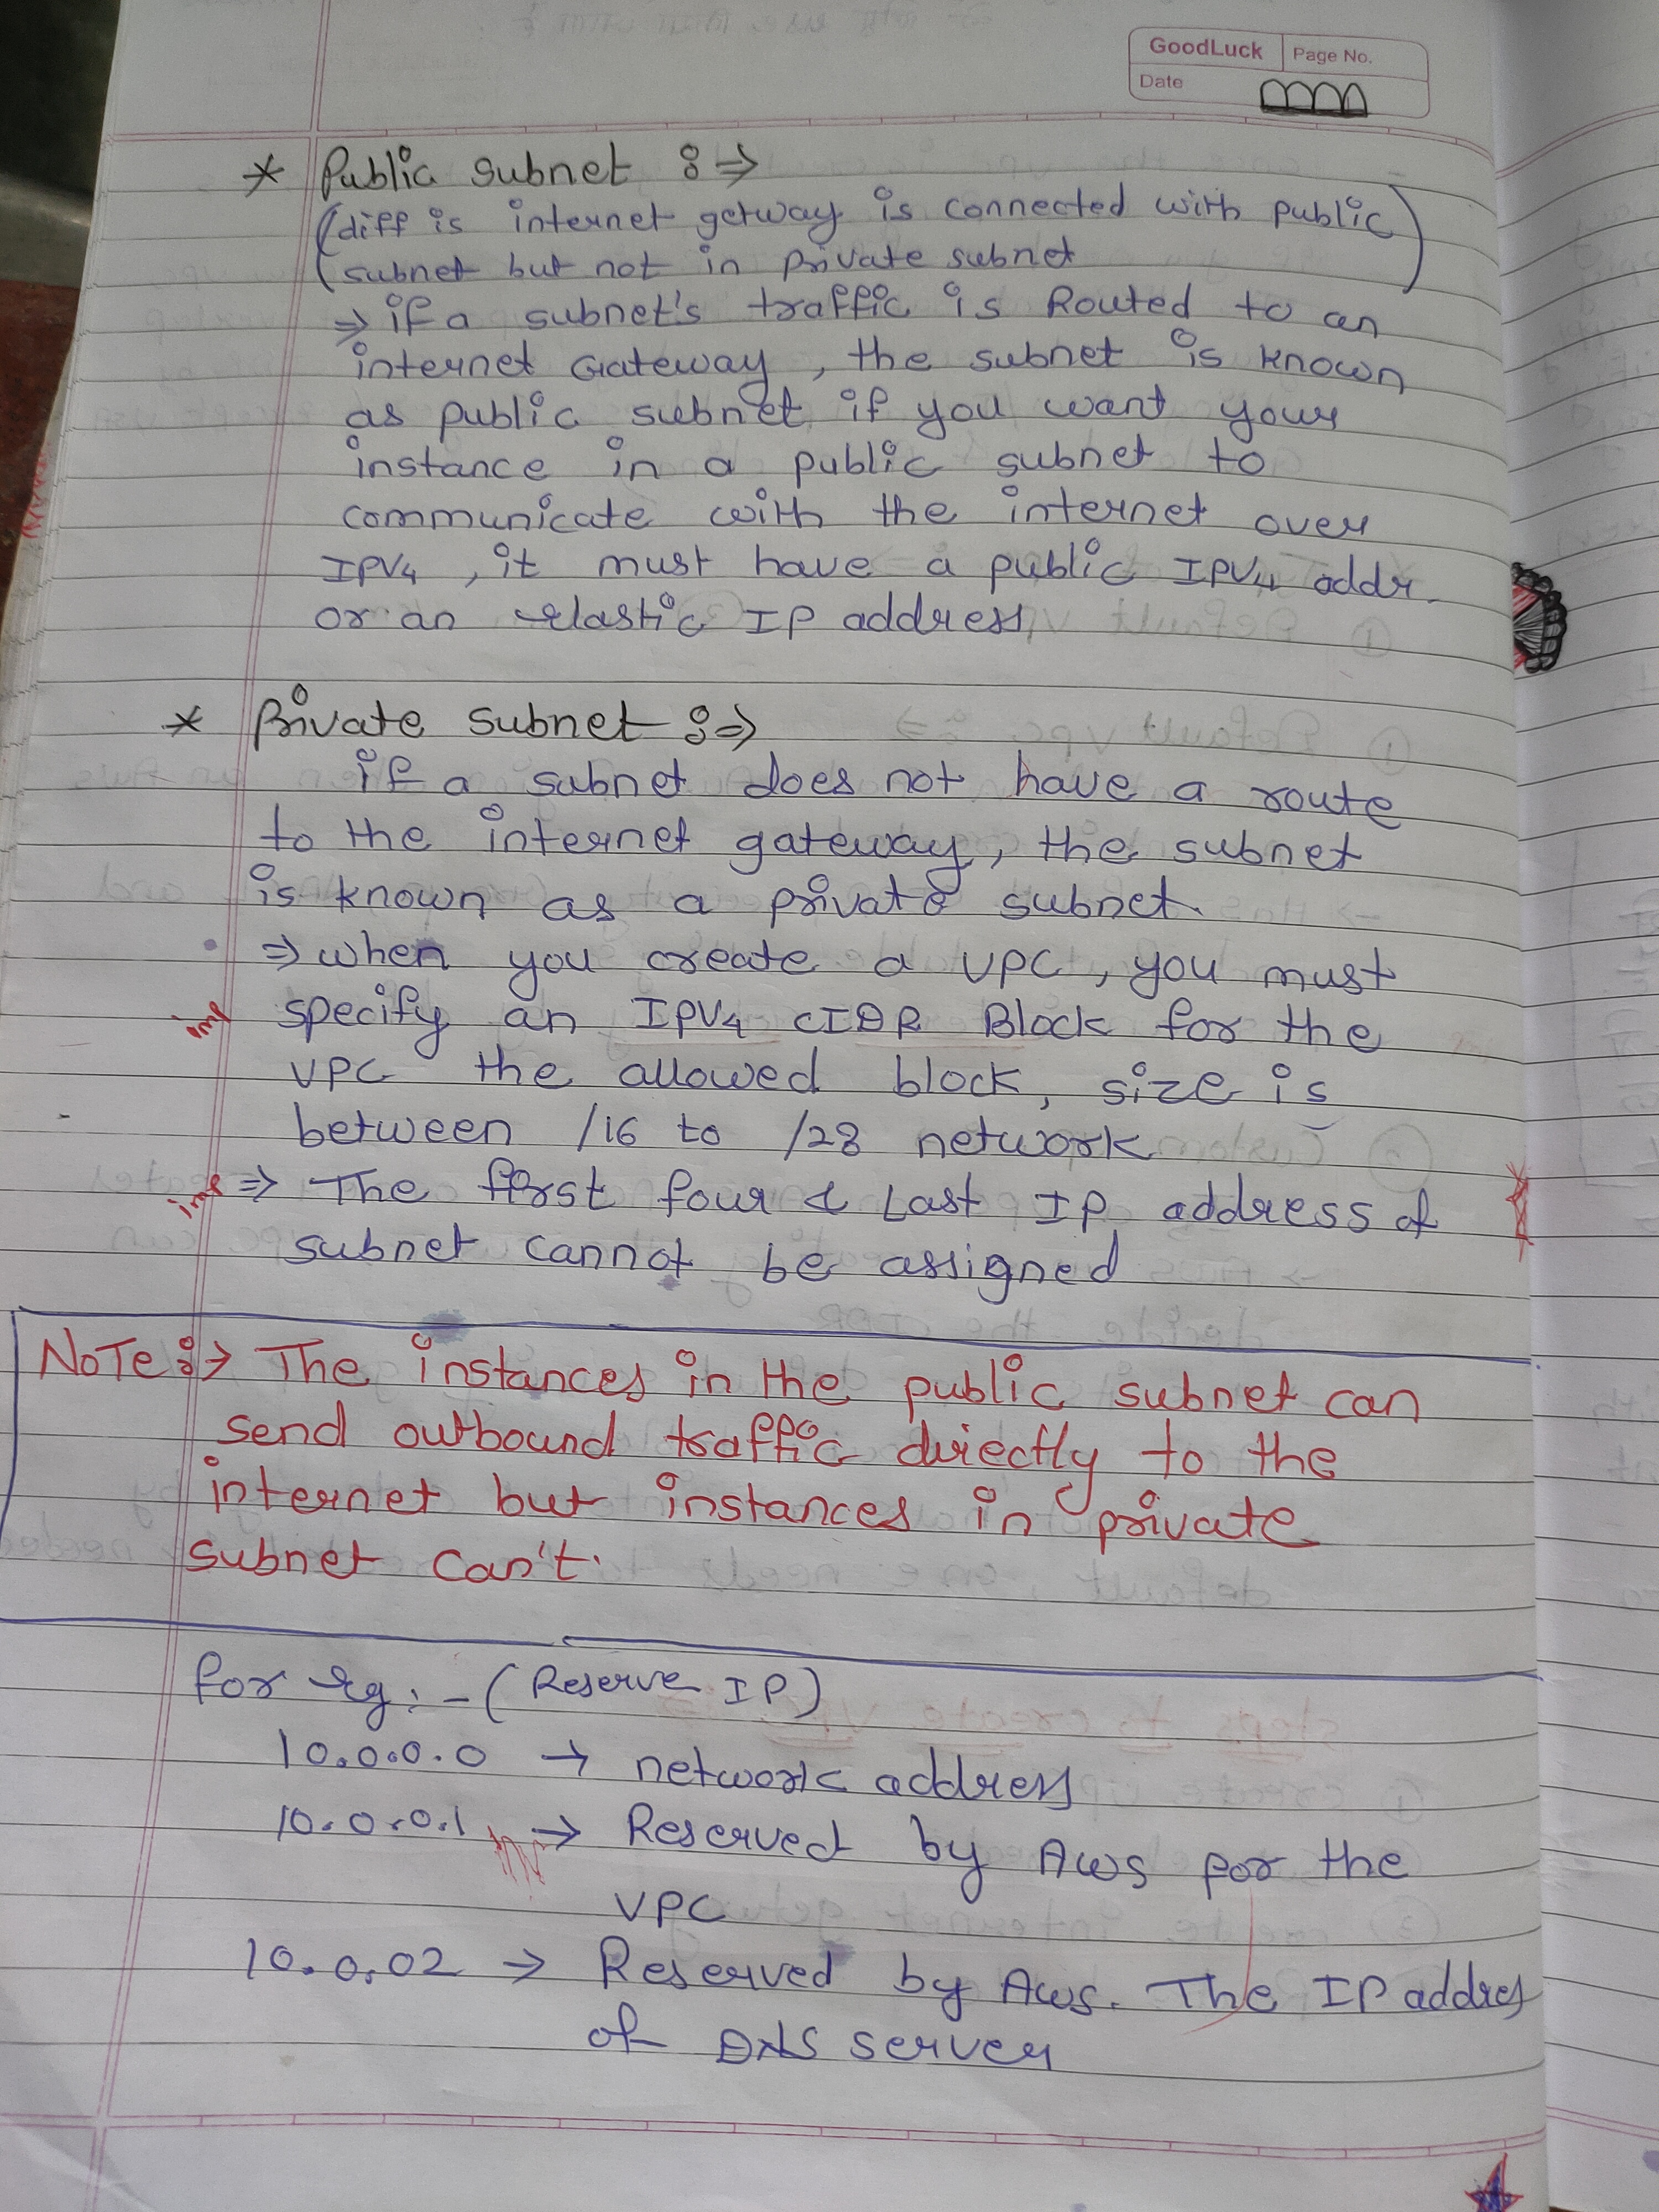 GoodLuck Page No.
Date
* Public subnet :⇒
(diff is internet getway is connected with public
subnet but not in private subnet)
⇒ if a subnet's traffic is Routed to an
internet Gateway, the subnet is known
as public subnet if you want your
instance in a public subnet to
communicate with the internet over
IPV4, it must have a public IPV4 addr.
or an elastic IP address
* Private subnet :⇒
if a subnet does not have a route
to the internet gateway, the subnet
is known as a private subnet.
⇒ when you create a VPC, you must
imp specify an IPV4 CIDR Block for the
VPC the allowed block, size is
between /16 to /28 network
imp ⇒ The first four & Last IP address of
subnet cannot be assigned
NOTE :→ The instances in the public subnet can
send outbound traffic directly to the
internet but instances in private
subnet can't.
for eg: - (Reserve IP)
10.0.0.0 → network address
10.0.0.1 → Reserved by Aws for the
VPC
10.0.02 → Reserved by Aws. The IP addres
of DNS server